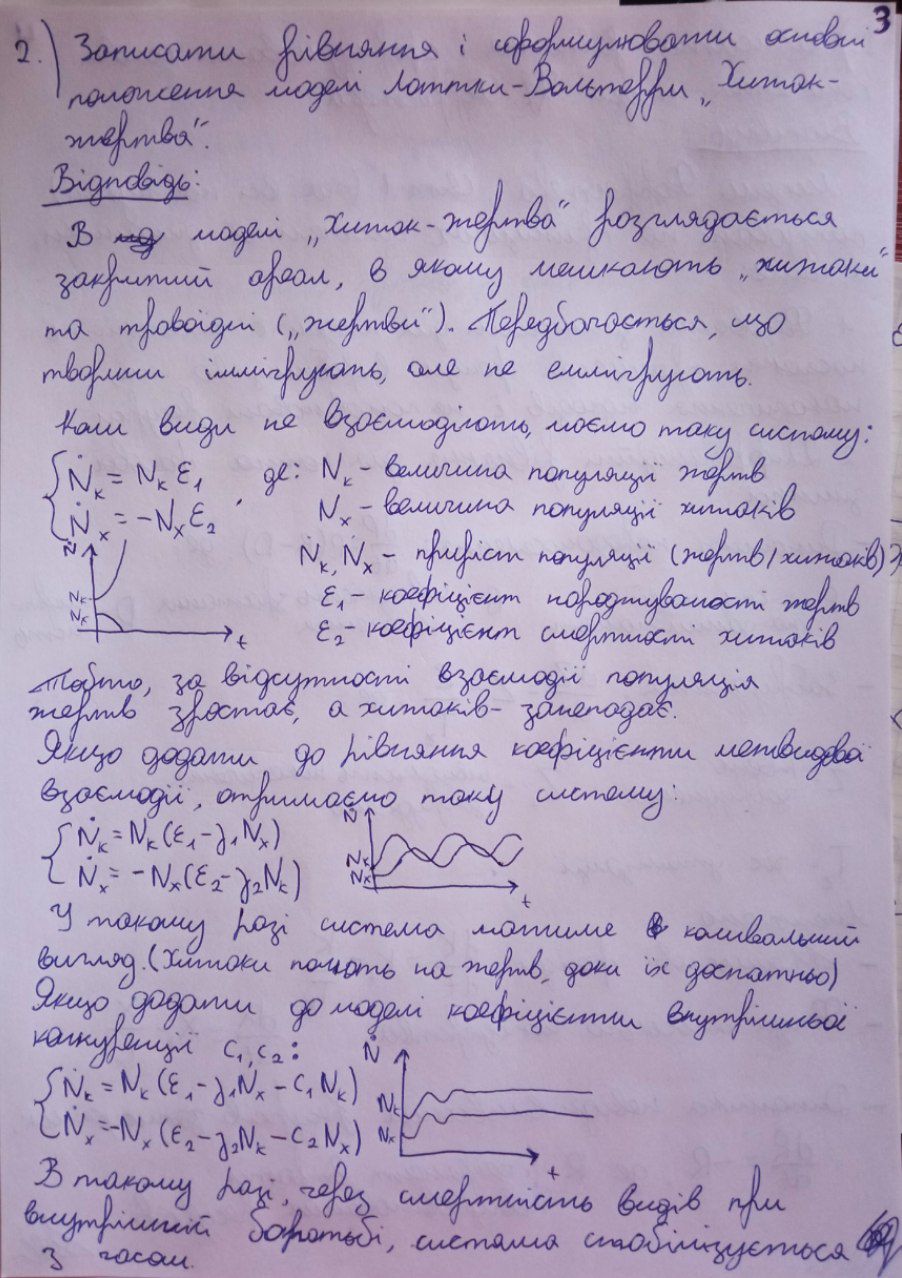 3
2.) Записати рівняння і сформулювати основні
положення моделі Лоттки-Вольтерри „Хижак-
жертва".
Відповідь:
В моделі „Хижак-жертва" розглядається
закритий ареал, в якому мешкають „хижаки"
та травоїдні („жертви"). Передбачається, що
тварини іммігрують, але не еммігрують.
Коли види не взаємодіють, маємо таку систему:
Ṅₖ = Nₖ ε₁ , де: Nₖ - величина популяції жертв
Ṅₓ = -Nₓ ε₂ Nₓ - величина популяції хижаків
Ṅₖ, Ṅₓ - приріст популяції (жертв/хижаків)
ε₁ - коефіцієнт народжуваності жертв
ε₂ - коефіцієнт смертності хижаків
Ṅ Nₖ Nₓ t
Тобто, за відсутності взаємодії популяція
жертв зростає, а хижаків - занепадає.
Якщо додати до рівняння коефіцієнти метвидової
взаємодії, отримаємо таку систему:
Ṅₖ = Nₖ(ε₁ - γ₁Nₓ)
Ṅₓ = -Nₓ(ε₂ - γ₂Nₖ)
Ṅ Nₖ Nₓ t
У такому разі система матиме коливальний
вигляд. (Хижаки полюють на жертв, доки їх достатньо)
Якщо додати до моделі коефіцієнти внутрішньої
конкуренції c₁, c₂:
Ṅₖ = Nₖ(ε₁ - γ₁Nₓ - c₁Nₖ)
Ṅₓ = -Nₓ(ε₂ - γ₂Nₖ - c₂Nₓ)
Ṅ Nₖ Nₓ t
В такому разі, через смертність видів при
внутрішній боротьбі, система стабілізується
з часом.